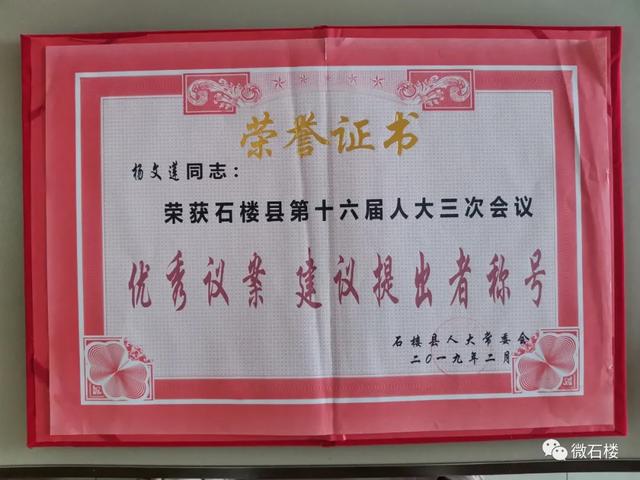 荣誉证书
杨文莲同志：
荣获石楼县第十六届人大三次会议
优秀议案 建议提出者称号
石楼县人大常委会
二〇一九年二月
微石楼